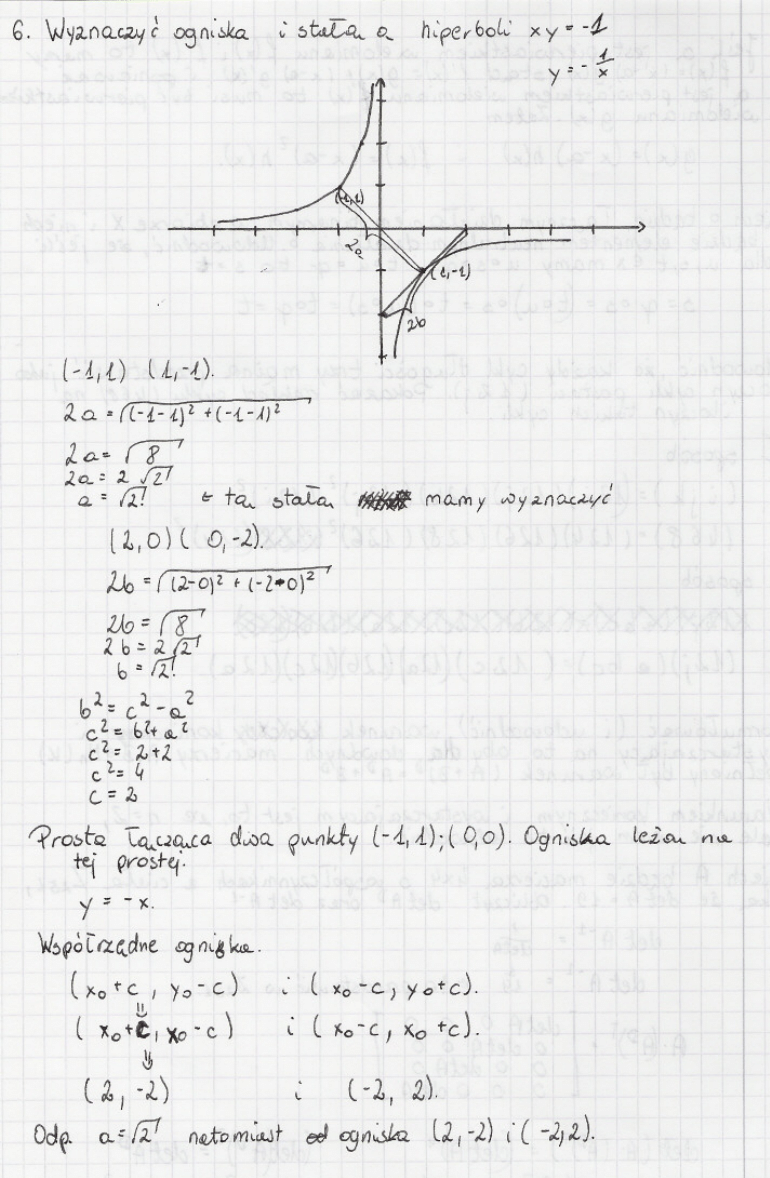 6. Wyznaczyć ogniska i stałą a hiperboli xy = -1
y = - 1/x
(-1,1)
2a
(1,-1)
2b
(-1,1) (1,-1).
2a = √((-1-1)² + (-1-1)²)
2a = √8
2a = 2√2
a = √2 ← tą stałą mamy wyznaczyć
(2,0) (0,-2).
2b = √((2-0)² + (-2-0)²)
2b = √8
2b = 2√2
b = √2
b² = c² - a²
c² = b² + a²
c² = 2+2
c² = 4
c = 2
Prosta łącząca dwa punkty (-1,1);(0,0). Ogniska leżą na
tej prostej.
y = -x.
Współrządne ogniska.
(x₀+c, y₀-c) i (x₀-c, y₀+c).
⇓
(x₀+c, x₀-c) i (x₀-c, x₀+c).
⇓
(2,-2) i (-2,2).
Odp. a=√2 natomiast ogniska (2,-2) i (-2,2).